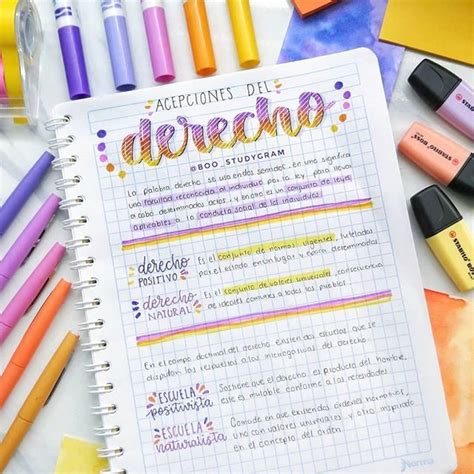 ACEPCIONES DEL
derecho
@BOO_STUDYGRAM
La palabra derecho se usa en dos sentidos, en uno significa
una facultad reconocida al individuo por la ley para llevar
a cabo determinados actos, y en otro es un conjunto de leyes
aplicables a la conducta social de los individuos
derecho POSITIVO
Es el conjunto de normas vigentes,
por el estado en un lugar y época determinados
derecho NATURAL
Es el conjunto de valores universales, consecuencia
de ideales comunes a todos los pueblos.
En el campo doctrinal del derecho existen dos escuelas que se
disputan las respuestas a las del derecho.
ESCUELA positivista
Sostiene que el derecho es producto del hombre,
este es mutable conforme a las
ESCUELA naturalista
en que existen dos órdenes
uno con valores universales y otro inspirado
en el concepto del orden.
Norma
STABILO BOSS
STABILO BOSS
STABILO BOSS